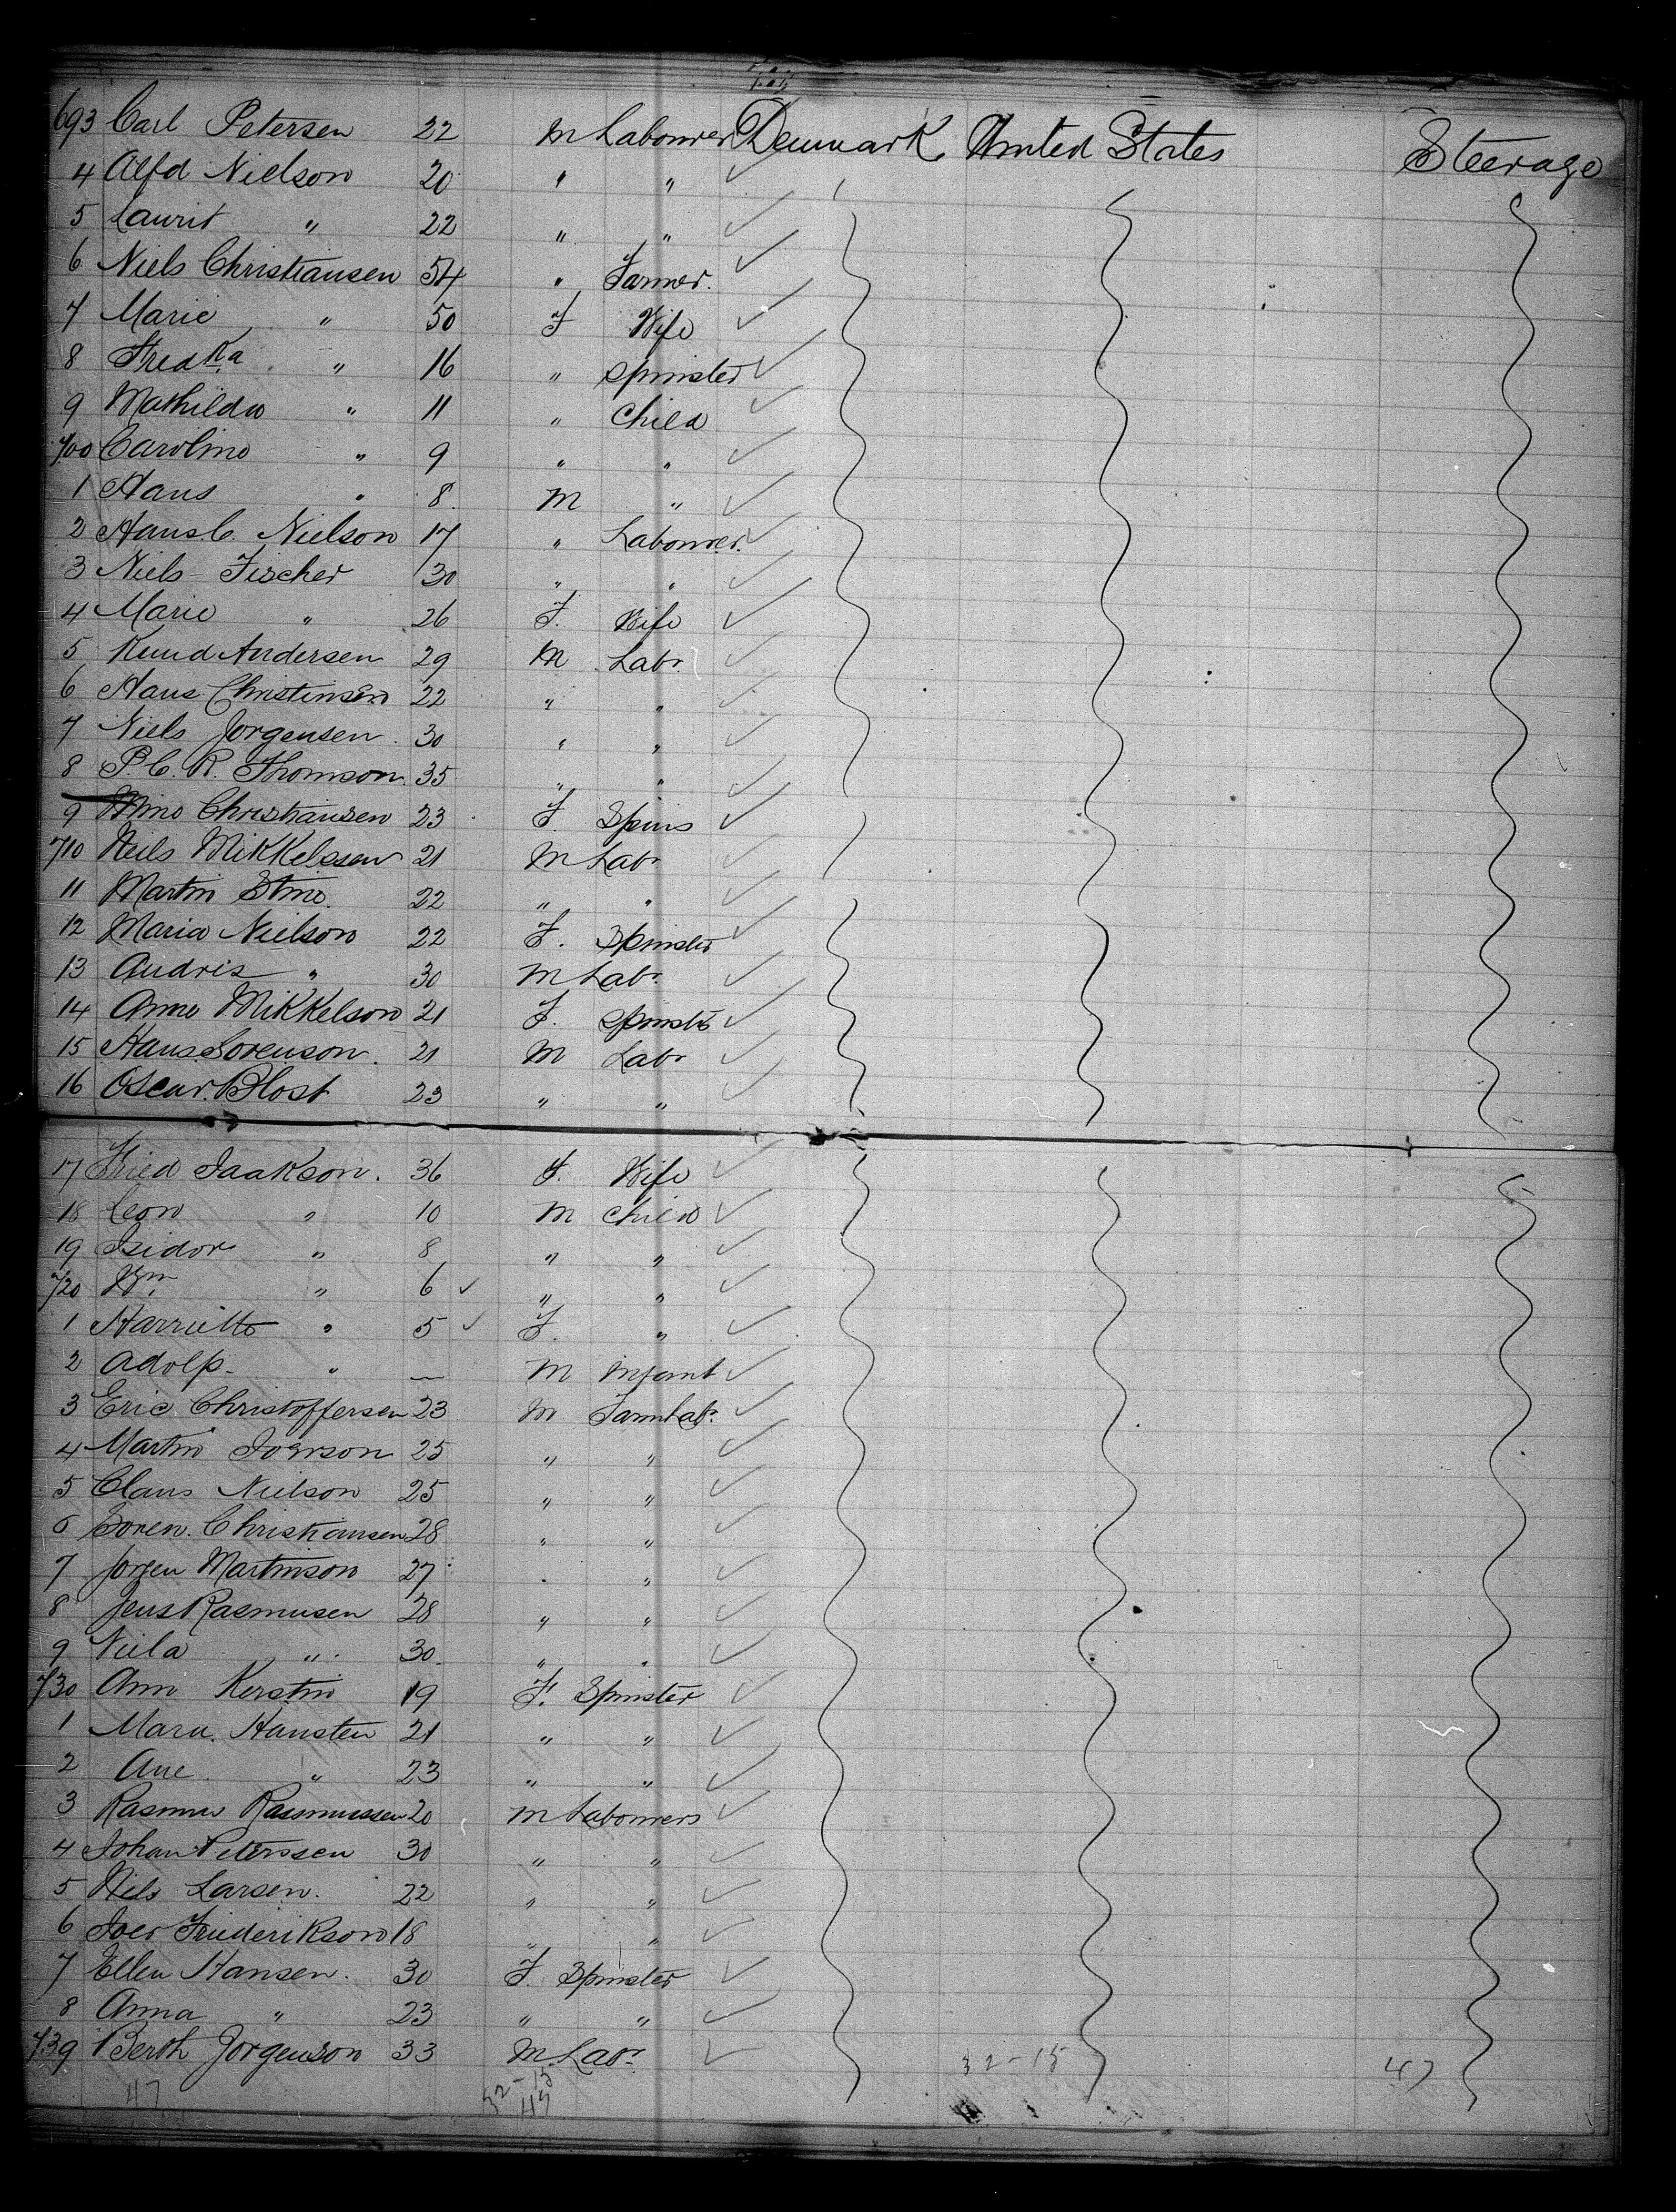 693 Carl Petersen 22 M Labourer Denmark United States Steerage
4 Alfd Nielson 20 " "
5 Laurit " 22 " "
6 Niels Christiansen 54 " Farmer.
7 Marie " 50 F Wife
8 Fredka " 16 " Spinster
9 Mathilda " 11 " Child
700 Caroline " 9 " "
1 Hans " 8. M "
2 Hans C. Nielson 17 " Labourer.
3 Niels Fischer 30 " "
4 Marie " 26 F. Wife
5 Knud Andersen 29 M Labr
6 Hans Christensen 22 " "
7 Niels Jorgensen 30 " "
8 P. C. R. Thomson 35 " "
9 Mine Christiansen 23 F. Spins
710 Neils Mikkelssen 21 M Labr
11 Martin Stine. 22 " "
12 Maria Nielson 22 F. Spinster
13 Andris " 30 M Labr.
14 Anne Mikkelson 21 F. Spinstr
15 Hans Sorenson 21 M Labr
16 Oscar Blost 23 " "
17 Fried Isaakson. 36 F. Wife
18 Leon " 10 M Child
19 Isidor " 8 " "
720 Wm. " 6 " "
1 Harriette " 5 F. "
2 Adolp " — M Infant
3 Eric Christoffersen 23 M Farm Labr.
4 Martin Iverson 25 " "
5 Claus Nielson 25 " "
6 Soren Christiansen 28 " "
7 Jorgen Martinson 27 " "
8 Jens Rasmusen 28 " "
9 Niela " 30. " "
730 Ann Kerstin 19 F. Spinster
1 Mara Hansten 21 " "
2 Ane " 23 " "
3 Rasmus Rasmussen 20 M Labourers
4 Johan Peterssen 30 " "
5 Nils Larsen. 22 " "
6 Iver Friederikson 18 " "
7 Ellen Hansen. 30 F. Spinster
8 Anna " 23 " "
739 Berth Jorgenson 33 M Labr.
32-15 47
47 32-15
47